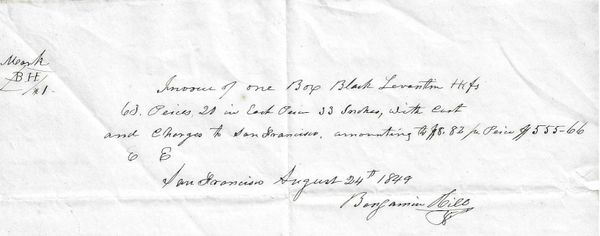 Mark
BH
Invoice of one Box Black Levantin Hkfs
63. Peices in Each Peice 33 Inches, with Cost
and Charges to San Francisco, amounting to $8.82 pr Peice $555-66
E E
San Francisco August 24th 1849
Benjamin Hill